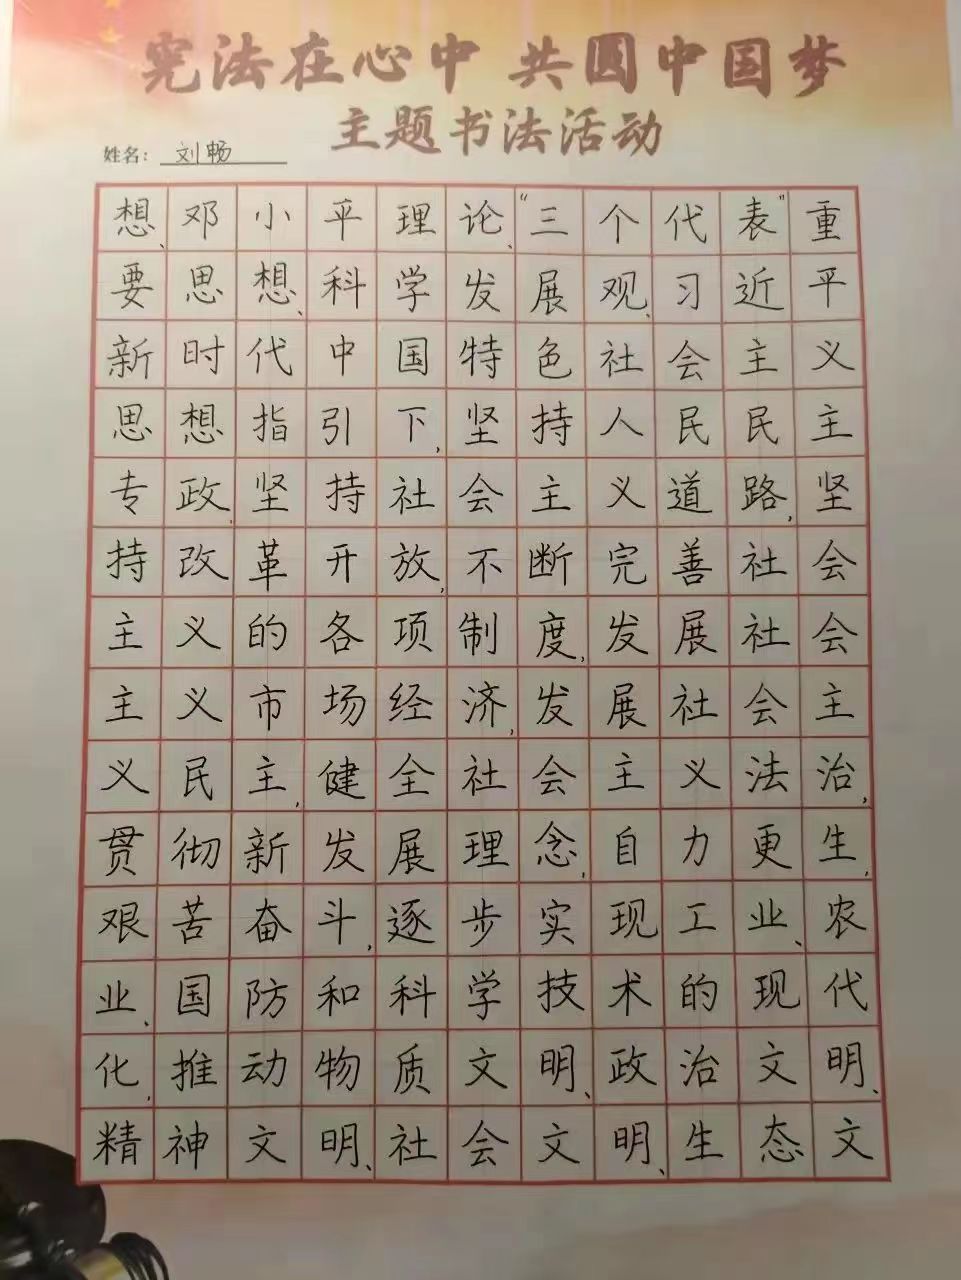 宪法在心中 共圆中国梦
主题书法活动
姓名：刘畅
想、邓小平理论、“三个代表”重
要思想、科学发展观、习近平
新时代中国特色社会主义
思想指引下，坚持人民民主
专政，坚持社会主义道路，坚
持改革开放，不断完善社会
主义的各项制度，发展社会
主义市场经济，发展社会主
义民主，健全社会主义法治，
贯彻新发展理念，自力更生，
艰苦奋斗，逐步实现工业、农
业、国防和科学技术的现代
化，推动物质文明、政治文明、
精神文明、社会文明、生态文